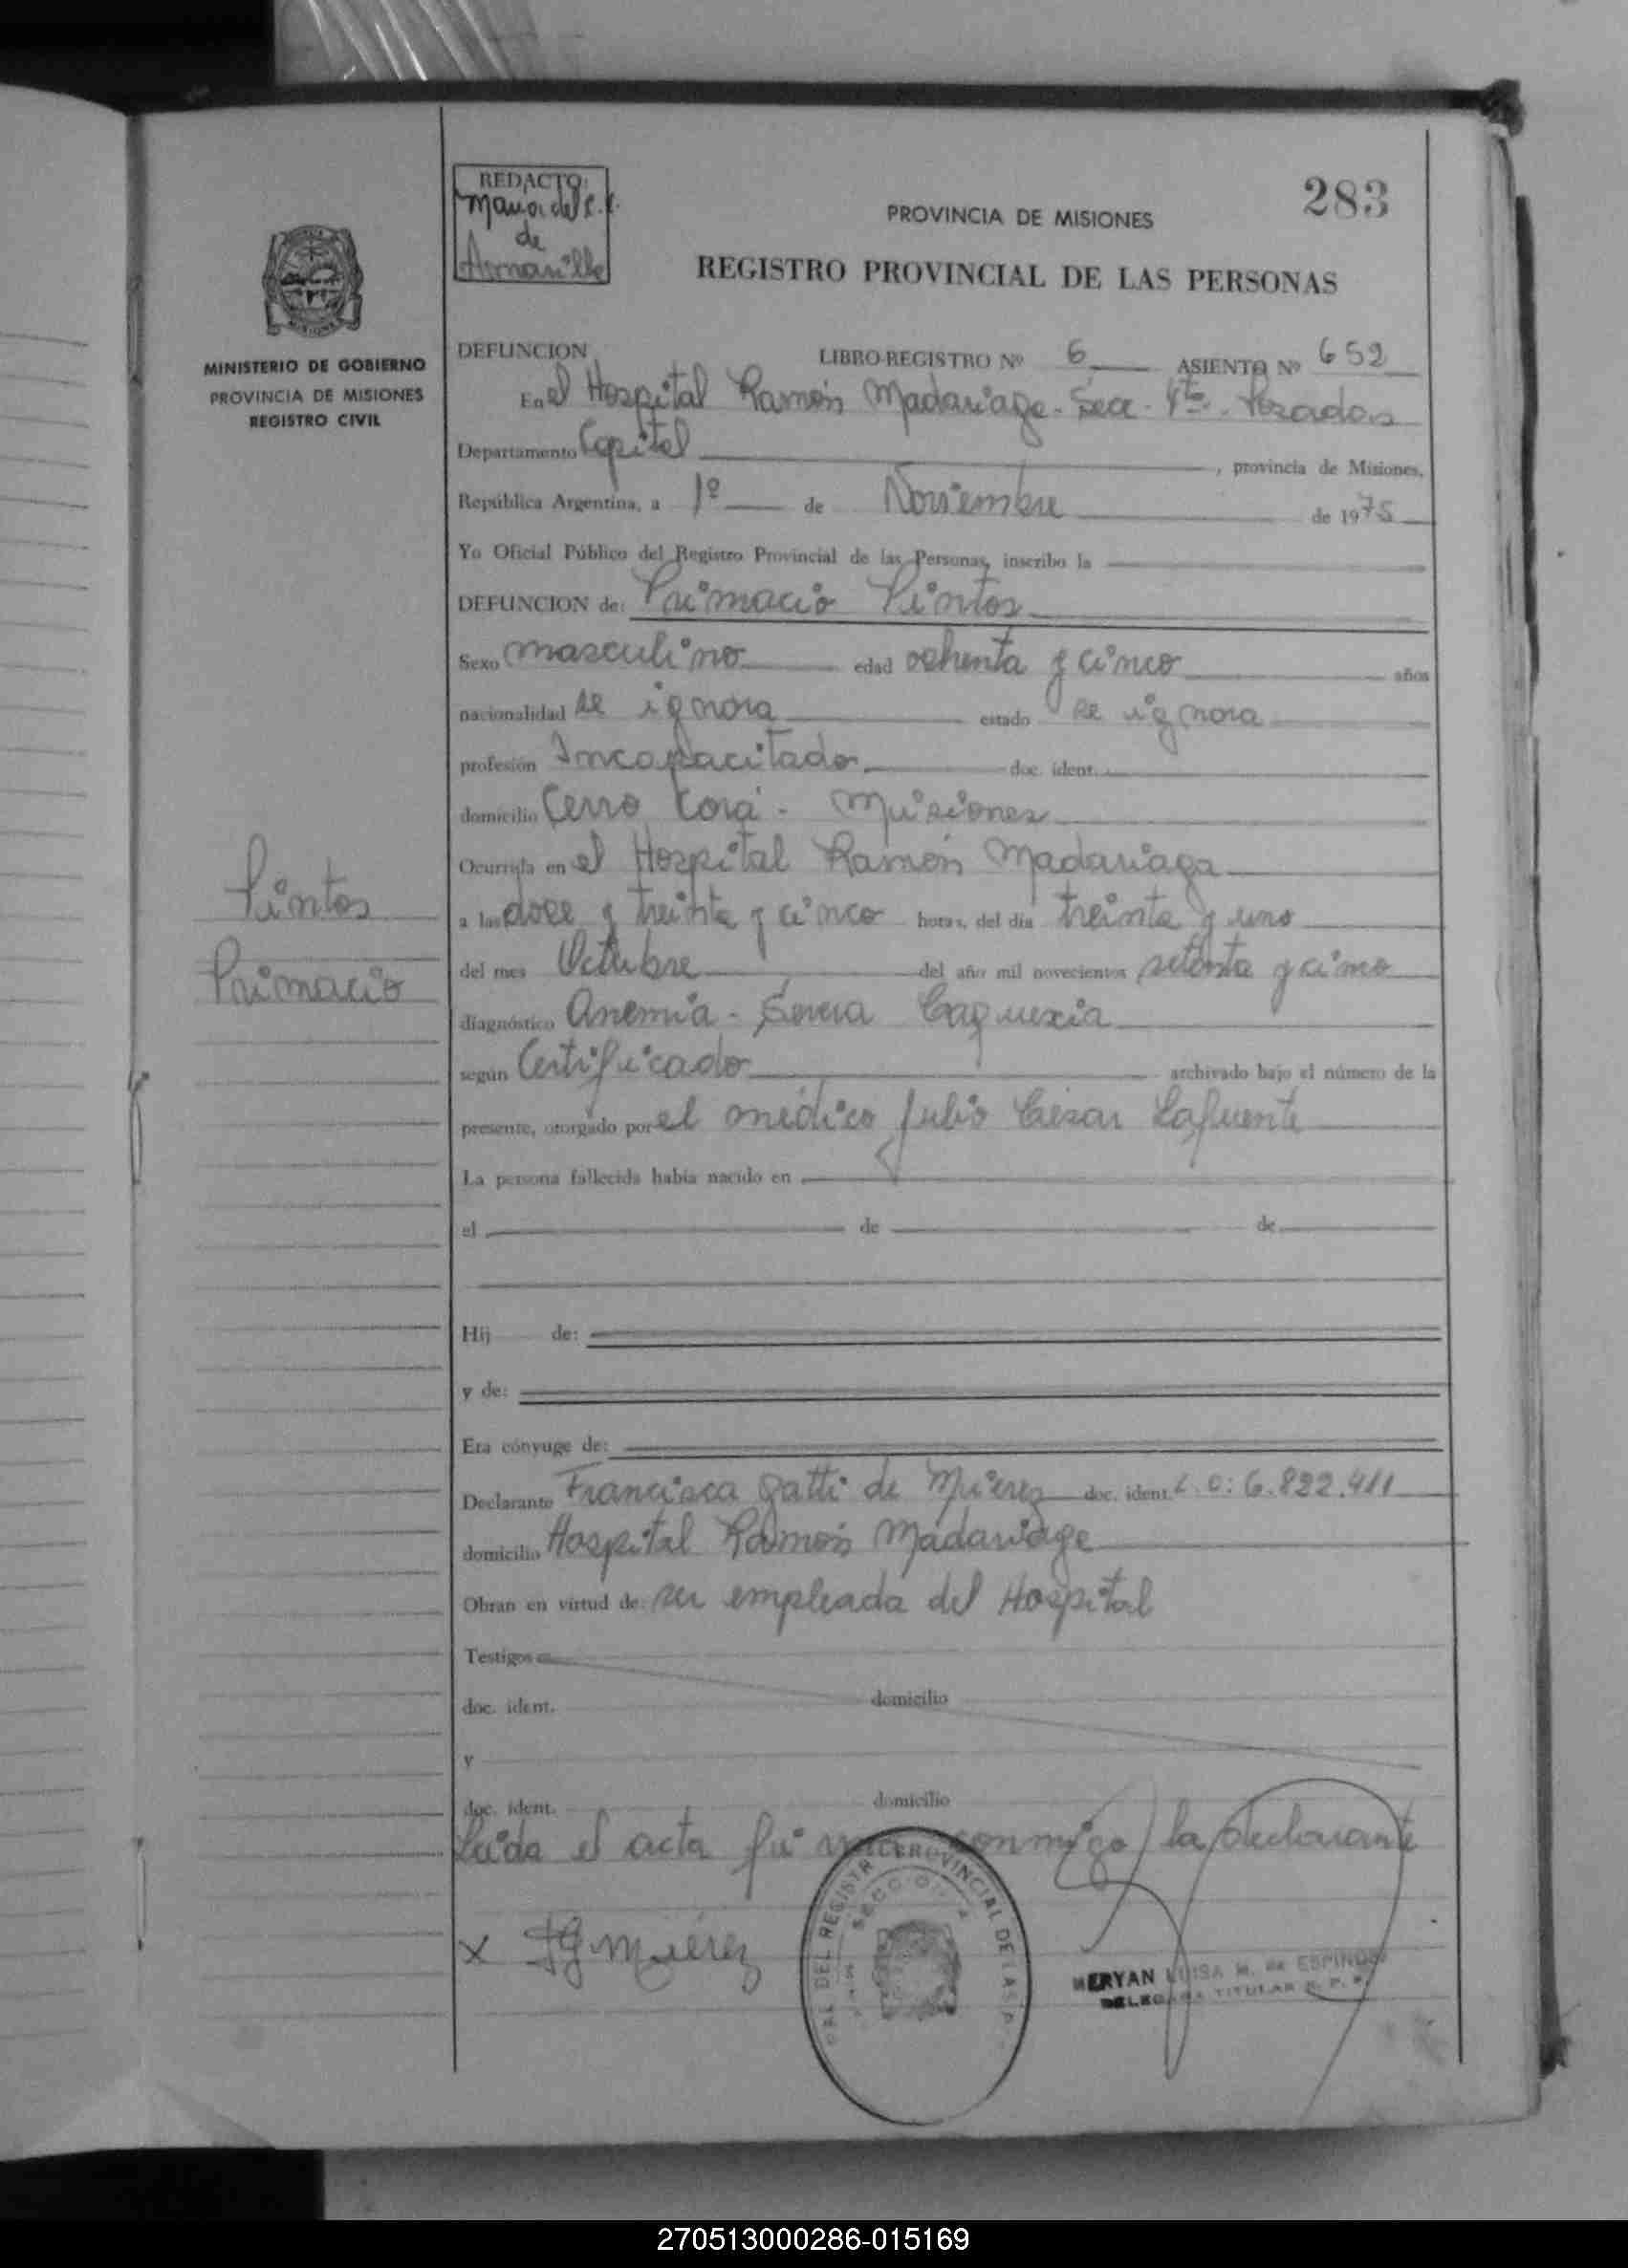 REDACTO:
Maria del C. F.
de
283
PROVINCIA DE MISIONES
REGISTRO PROVINCIAL DE LAS PERSONAS
MINISTERIO DE GOBIERNO
PROVINCIA DE MISIONES
REGISTRO CIVIL
DEFUNCION LIBRO-REGISTRO Nº 6 ASIENTO Nº 652
En el Hospital Ramón Madariaga - Secc. 4ta. Posadas
Departamento Capital, provincia de Misiones,
República Argentina, a 1º de Noviembre de 1975
Yo Oficial Público del Registro Provincial de las Personas, inscribo la
DEFUNCION de: Primacio Pintos
Sexo masculino edad ochenta y cinco años
nacionalidad se ignora estado se ignora
profesión Incapacitado doc. ident.
domicilio Cerro Corá - Misiones
Ocurrida en el Hospital Ramón Madariaga
Pintos
a las doce y treinta y cinco horas, del día treinta y uno
del mes Octubre del año mil novecientos setenta y cinco
Primacio
diagnóstico Anemia - Severa Caquexia
según Certificado archivado bajo el número de la
presente, otorgado por el médico Julio César Lafuente
La persona fallecida había nacido en
el de de
Hij de:
y de:
Era cónyuge de:
Declarante Francisca Gatti de Mierez doc. ident. L.C: 6.822.411
domicilio Hospital Ramón Madariaga
Obran en virtud de: ser empleada del Hospital
Testigos
doc. ident. domicilio
y
doc. ident. domicilio
Leida el acta conmigo la declarante
x FG Mierez
MERYAN LUISA M. de ESPINDOLA
DELEGADA TITULAR R. P. P.
270513000286-015169